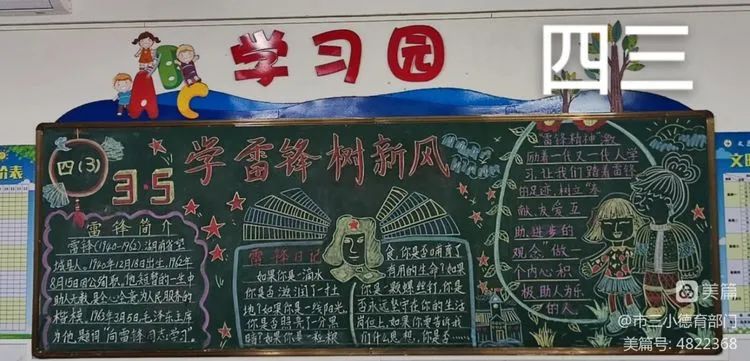 ABC
学习园
四三
四(3)
3.5
学雷锋树新风
雷锋简介
雷锋(1940-1962)湖南省望
城县人。1940年12月18日出生,1962年
8月15日因公殉职,他短暂的一生中
助人无数是全心全意为人民服务的
楷模。1963年3月5日毛泽东主席
为他题词"向雷锋同志学习"。
雷锋日记
如果你是一滴水
你是否滋润了一寸土
地?如果你是一线阳光,
你是否照亮了一分黑
暗?如果你是一粒粮
食,你是否哺育了
有用的生命?如果
你是一颗螺丝钉,你是
否永远坚守在你的生活
岗位上。如果你要告诉我
们什么思想,你是否
雷锋精神激
励着一代又一代人学
习,让我们踏着雷锋
的足迹,树立"奉
献、友爱、互
助、进步的
观念"做一
个内心积
极助人为乐
的人
美篇
@市三小德育部门
美篇号:4822368